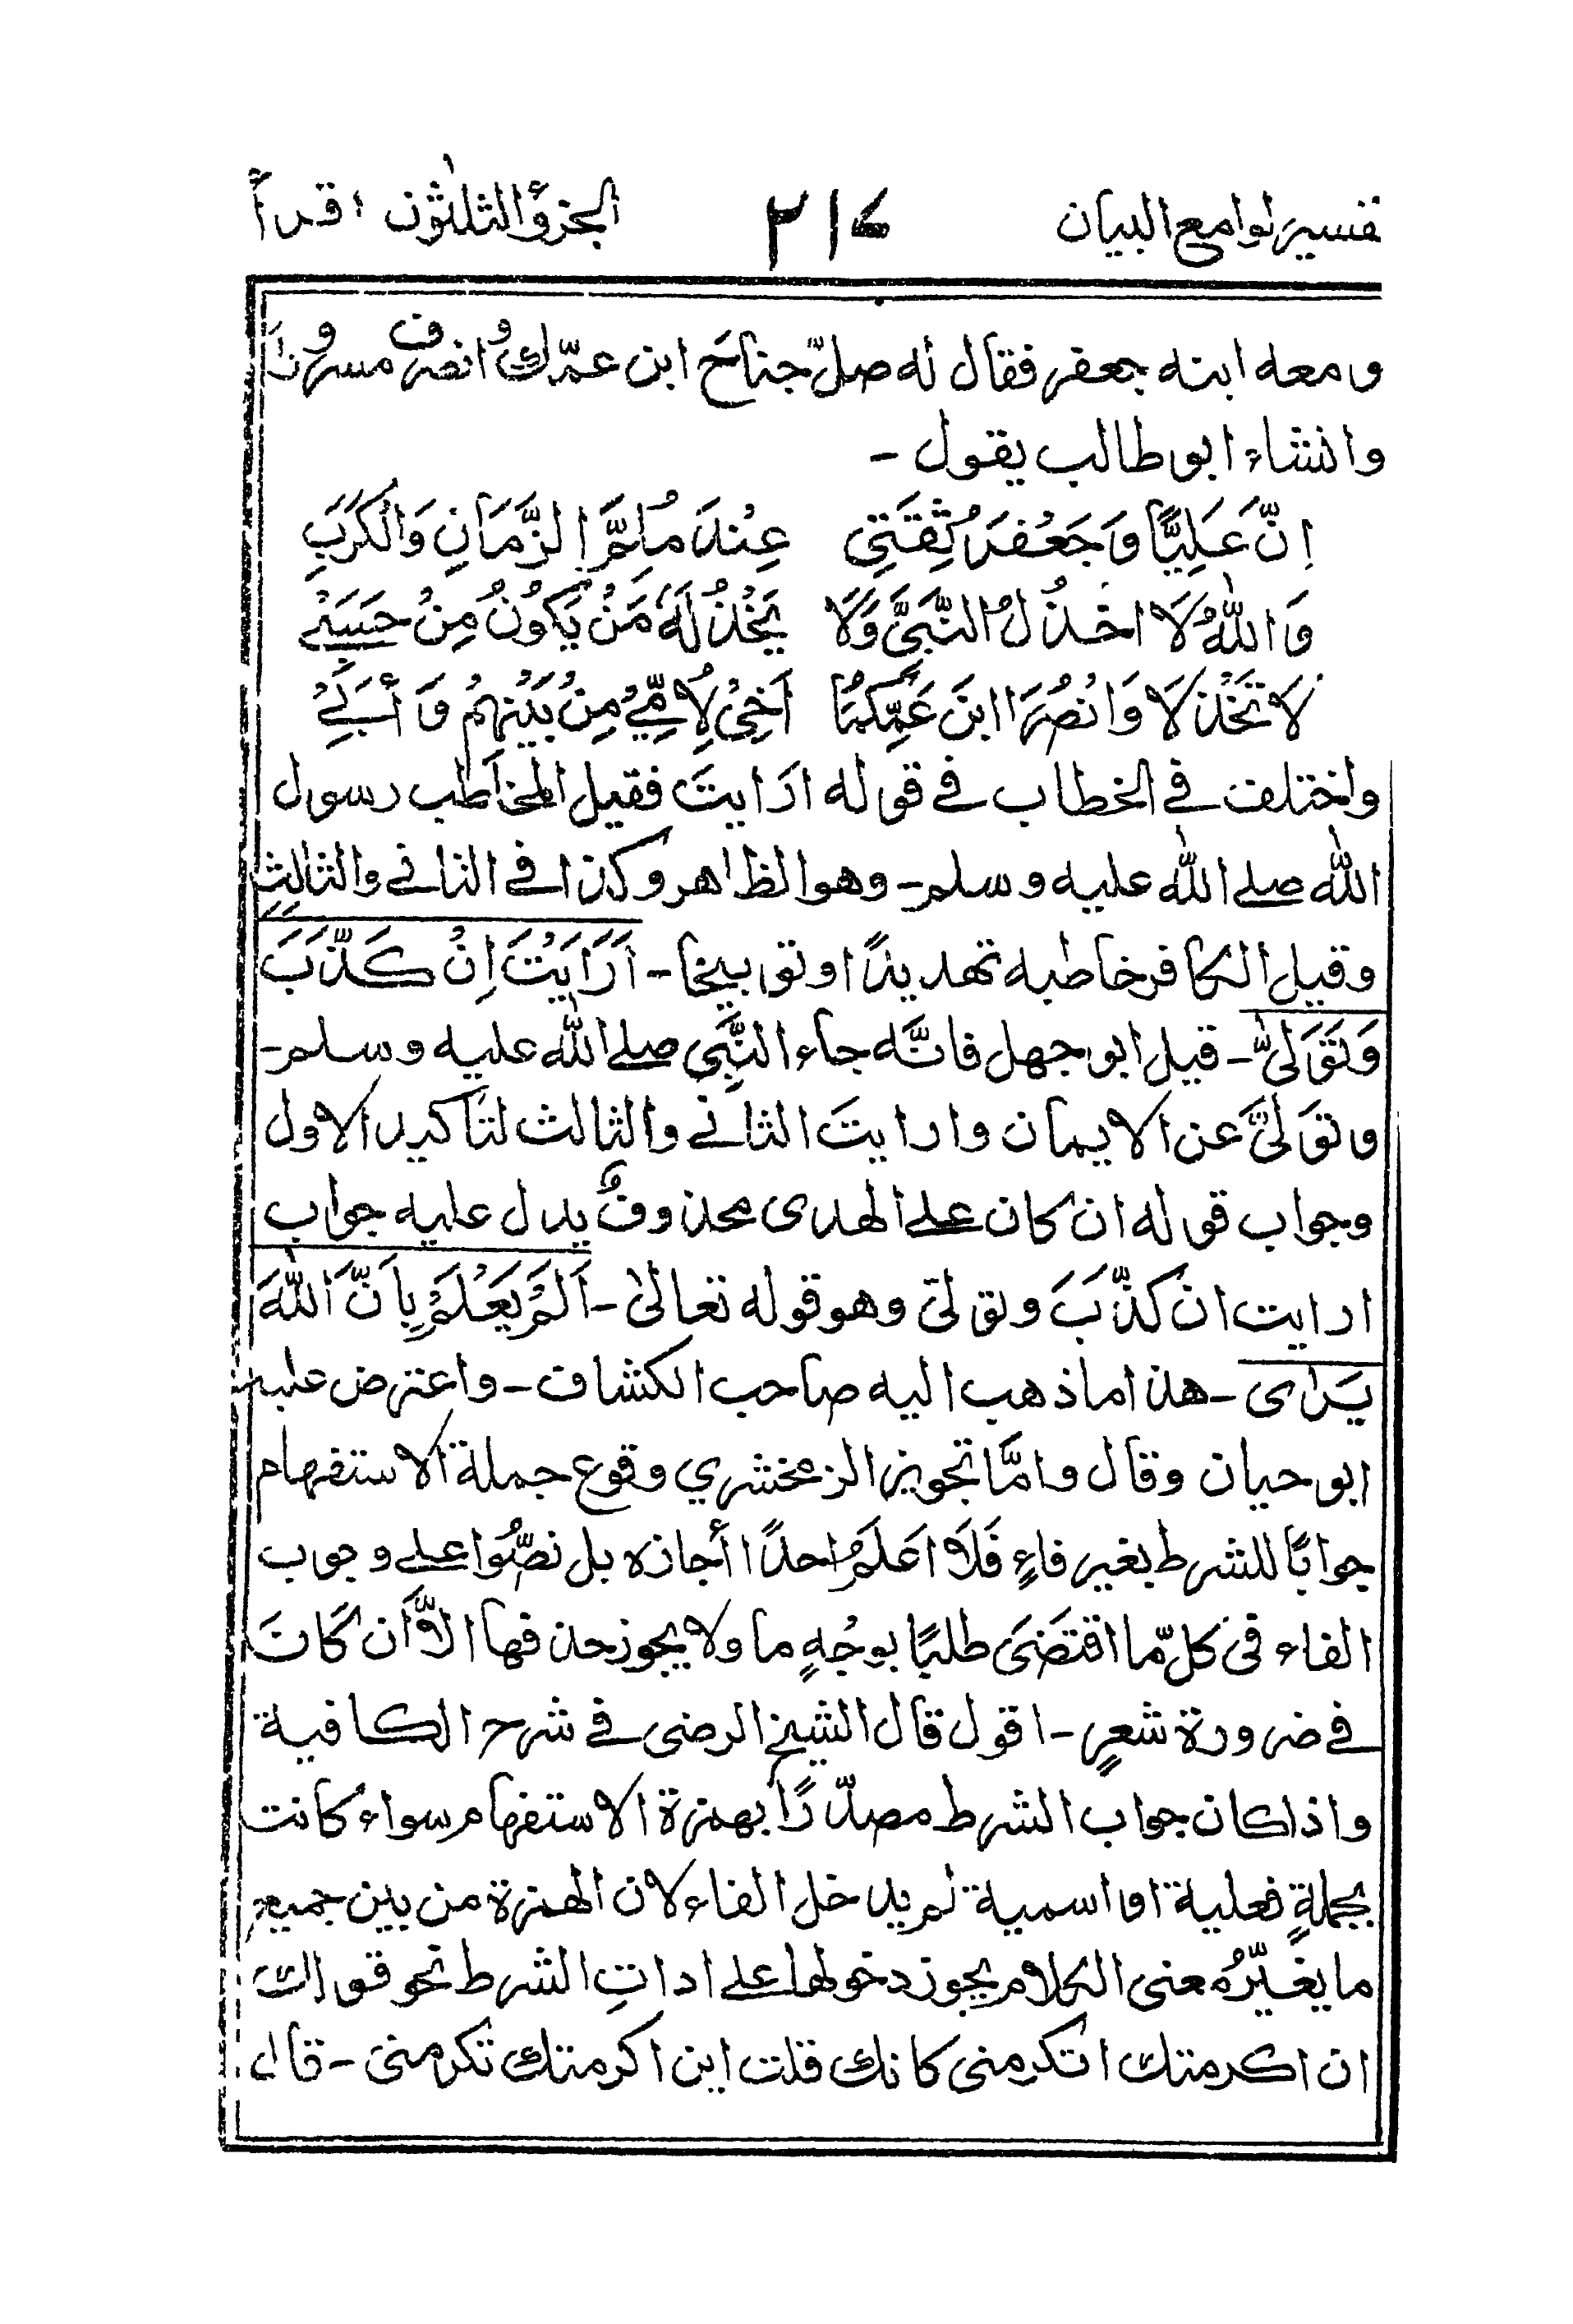 تفسير لوامع البيان ٢١٤ الجزؤ الثلٰثون اقرأ
ومعه ابنه جعفر فقال له صلّ جناحَ ابن عمّك وانصرف مسرورًا
وانشاء ابو طالب يقول -
اِنَّ عَلِيًّا وَجَعْفَرًا ثِقَتِي عِنْدَ مُلِمِّ الزَّمَانِ وَالْكُرَبِ
وَاللّٰهِ لَا اخْذُلُ النَّبِيَّ وَلَا يَخْذُلُهٗ مَنْ يَكُوْنُ مِنْ حَسَبِيْ
لَا تَخْذُلَا وَانْصُرَا ابنَ عَمِّكُمَا اَخِيْ لِاُمِّيْ مِنْ بَيْنِهِمْ وَأَبِيْ
واختلف في الخطاب في قوله ارَايتَ فقيل المخاطب رسول
اللّٰه صلے اللّٰه عليه وسلم - وهو الظاهر وكذا في الثاني والثالثِ
وقيل الكافر خاطبه تهديدًا وتوبيخا - اَرَاَيْتَ اِنْ كَذَّبَ
وَتَوَلّٰى - قيل ابو جهل فانَّه جاء النَّبِي صلے اللّٰه عليه وسلم -
وتَوَلّىَ عن الايمان وارايتَ الثاني والثالث لتاكيد الاول
وجواب قوله ان كان علے الهدى محذوفٌ يدل عليه جواب
ارايت ان كذّبَ وتولّى وهو قوله تعالىٰ - اَلَمْ يَعْلَمْ بِاَنَّ اللّٰهَ
يَرٰى - هذا ما ذهب اليه صاحب الكشاف - واعترض عليه
ابو حيان وقال وامَّا تجويز الزمخشري وقوع جملة الاستفهام
جوابًا للشرط بغير فاءٍ فَلَا اَعْلَمُ احدًا أجازه بل نصُّوا علے وجوب
الفاء في كلّ ما اقتضَى طلبًا بوجْهٍ ما ولا يجوز حذفها الّا أن كَانَ
في ضرورة شعرٍ - اقول قال الشيخ الرضى في شرح الكافية
واذا كان جواب الشرط مصدّرًا بهمزة الاستفهام سواء كانت
بجملةٍ فعلية او اسمية لم يدخل الفاء لان الهمزة من بين جميع
ما يغيّرُ معنى الكلام يجوز دخولها علے اداتِ الشرط نحو قولك
ان اكرمتك اتكرمنى كانك قلت اين اكرمتك تكرمنى - قال